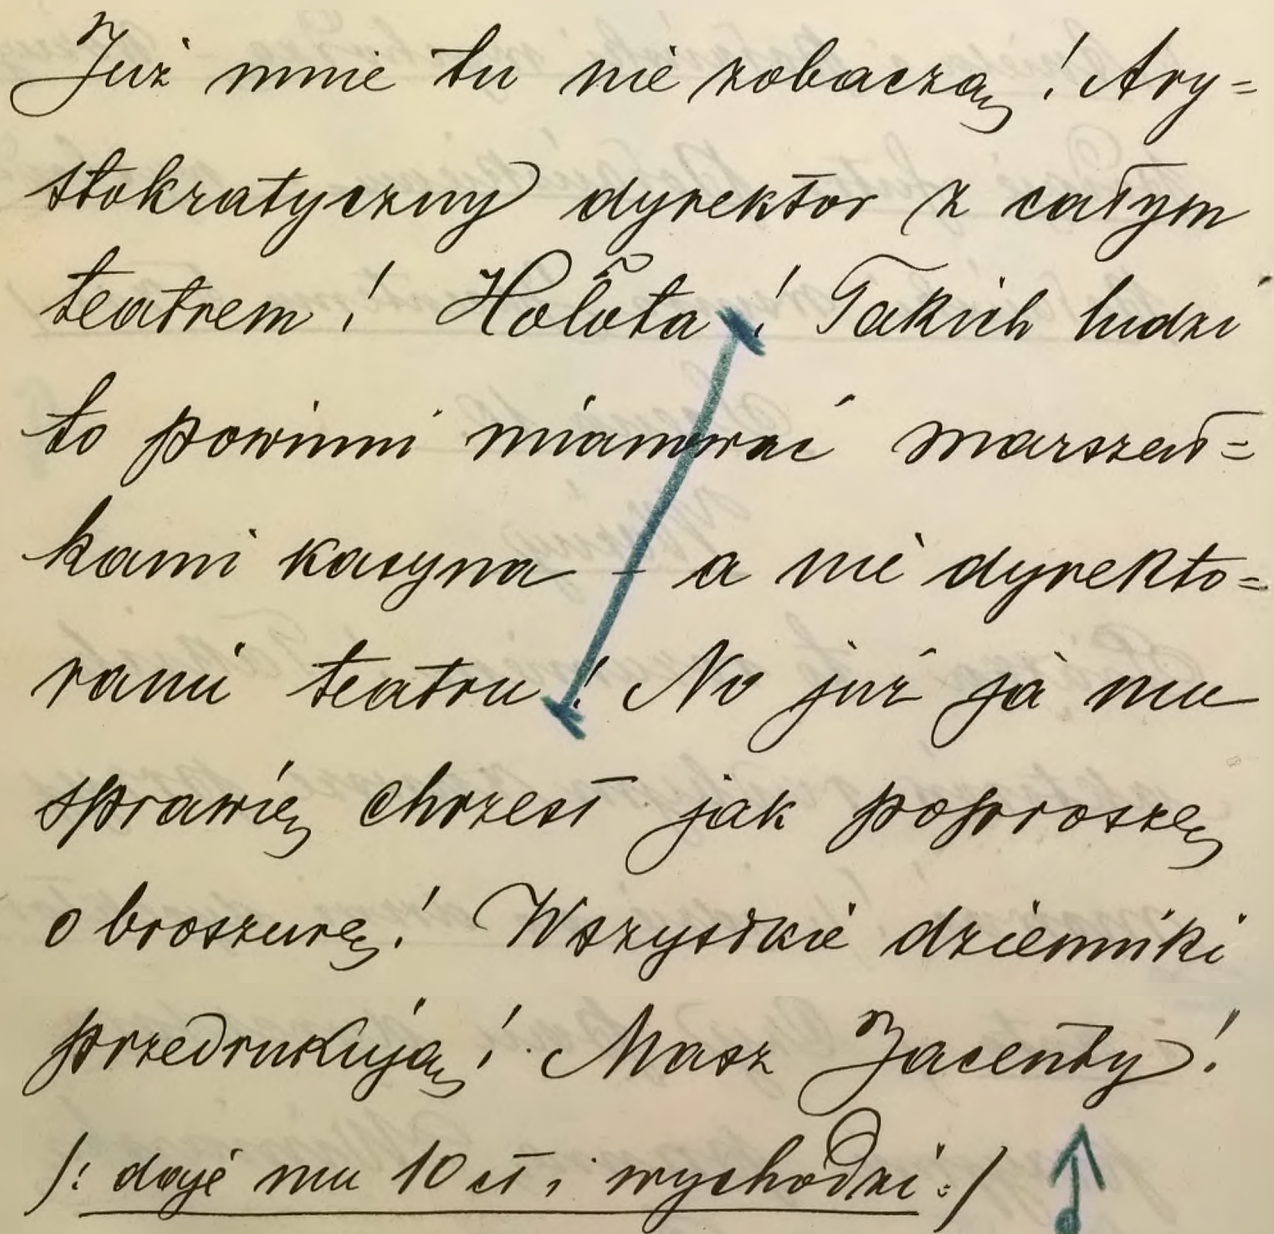 Już mnie tu nie zobaczą! Ary=
stokratyczny dyrektor z całym
teatrem! Hołota! Takich ludzi
to powinni mianować marszał=
kami kasyna – a nie dyrekto=
rami teatru! No już ja mu
sprawię chrzest jak poproszę
o broszurę! Wszystkie dzienniki
przedrukują! Masz Jacenty!
/: daje mu 10 ct i wychodzi :/